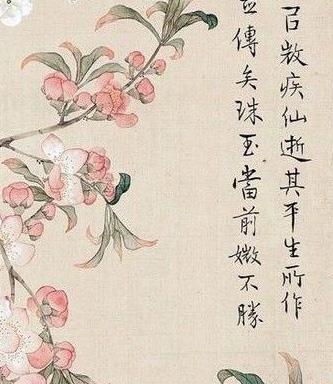 以數疾仙逝其平生所作
並傳矣珠玉當前媺不勝